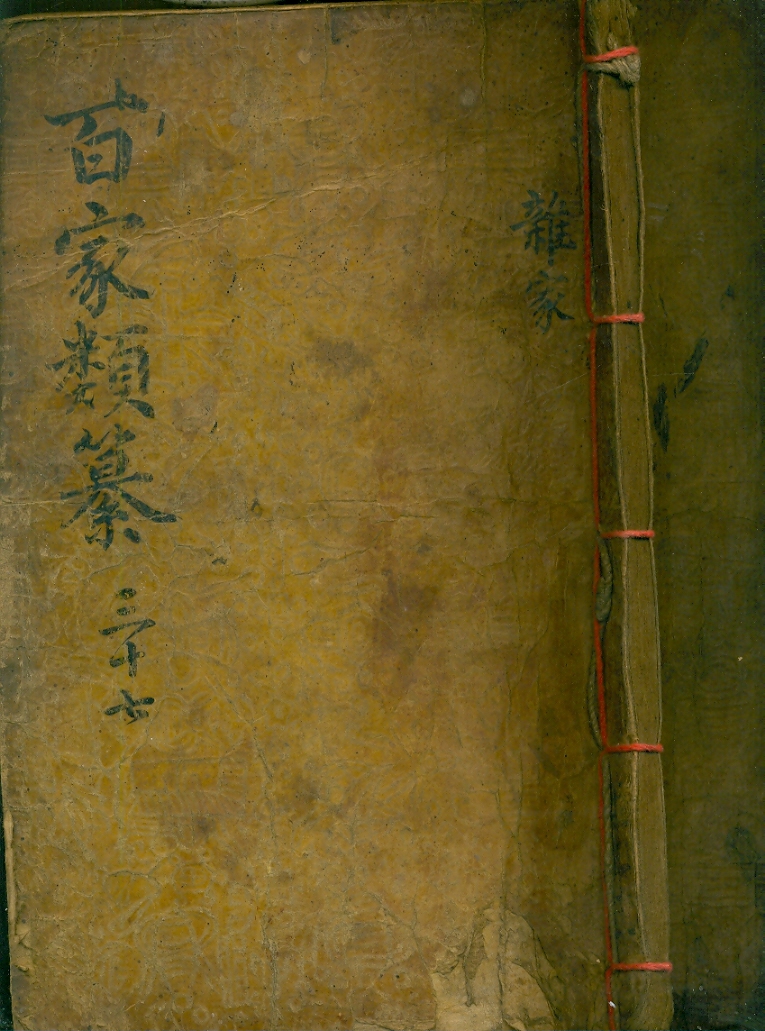 雜家
百家類纂 三十七